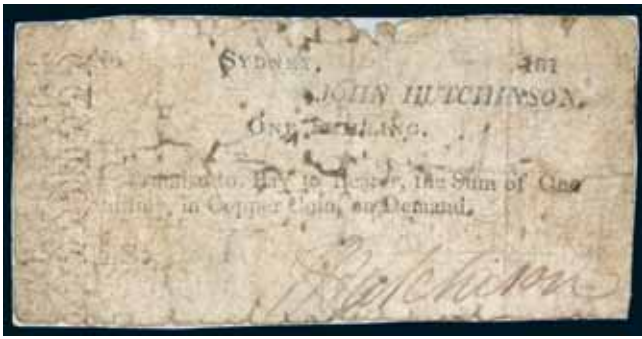 No. SYDNEY, 181
JOHN HUTCHINSON.
ONE SHILLING.
Promise to Pay to Bearer, the Sum of One
Shilling, in Copper Coin, on Demand.
Hutchinson